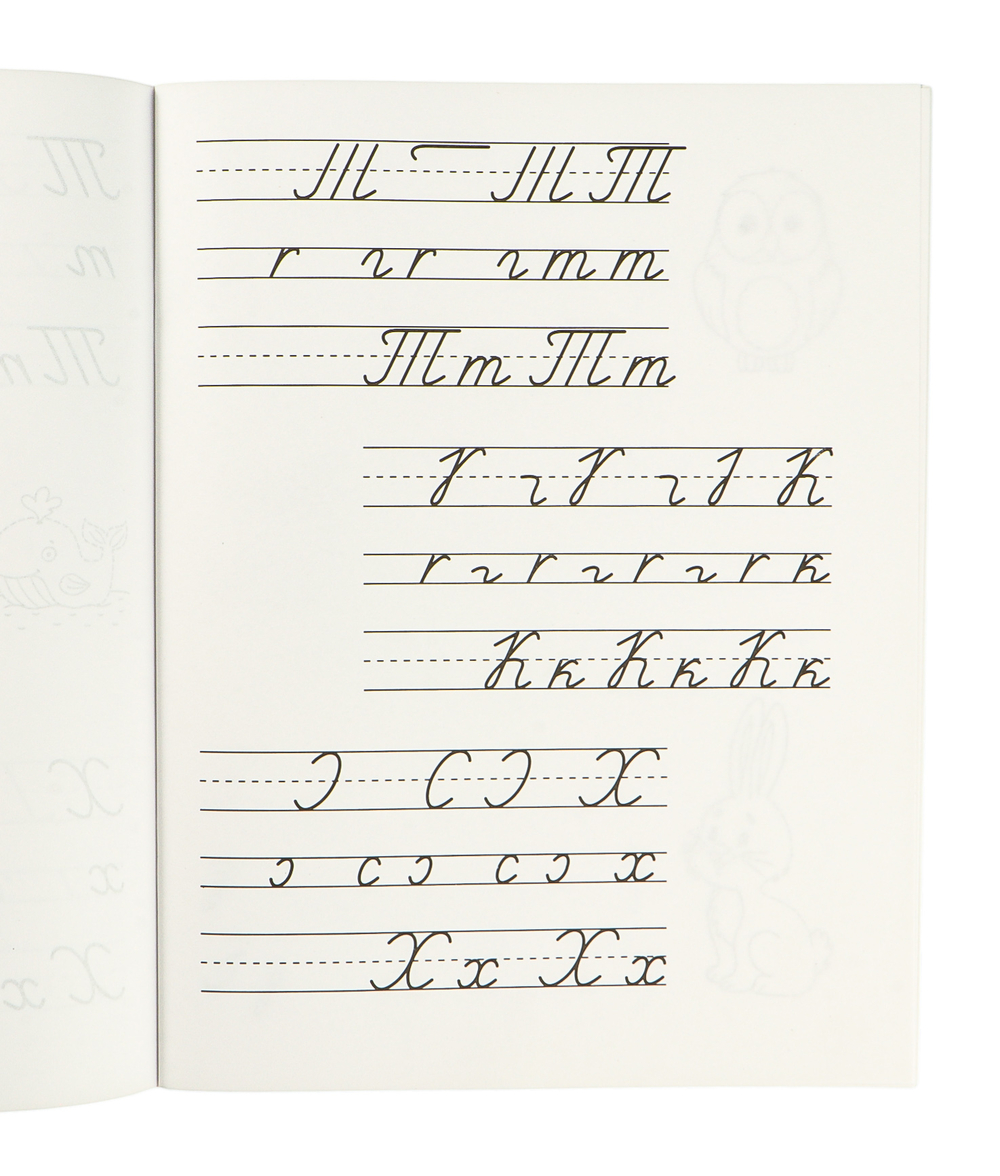 Т
т т
Тт Тт
К
к
Кк Кк Кк
Х
х
Хх Хх